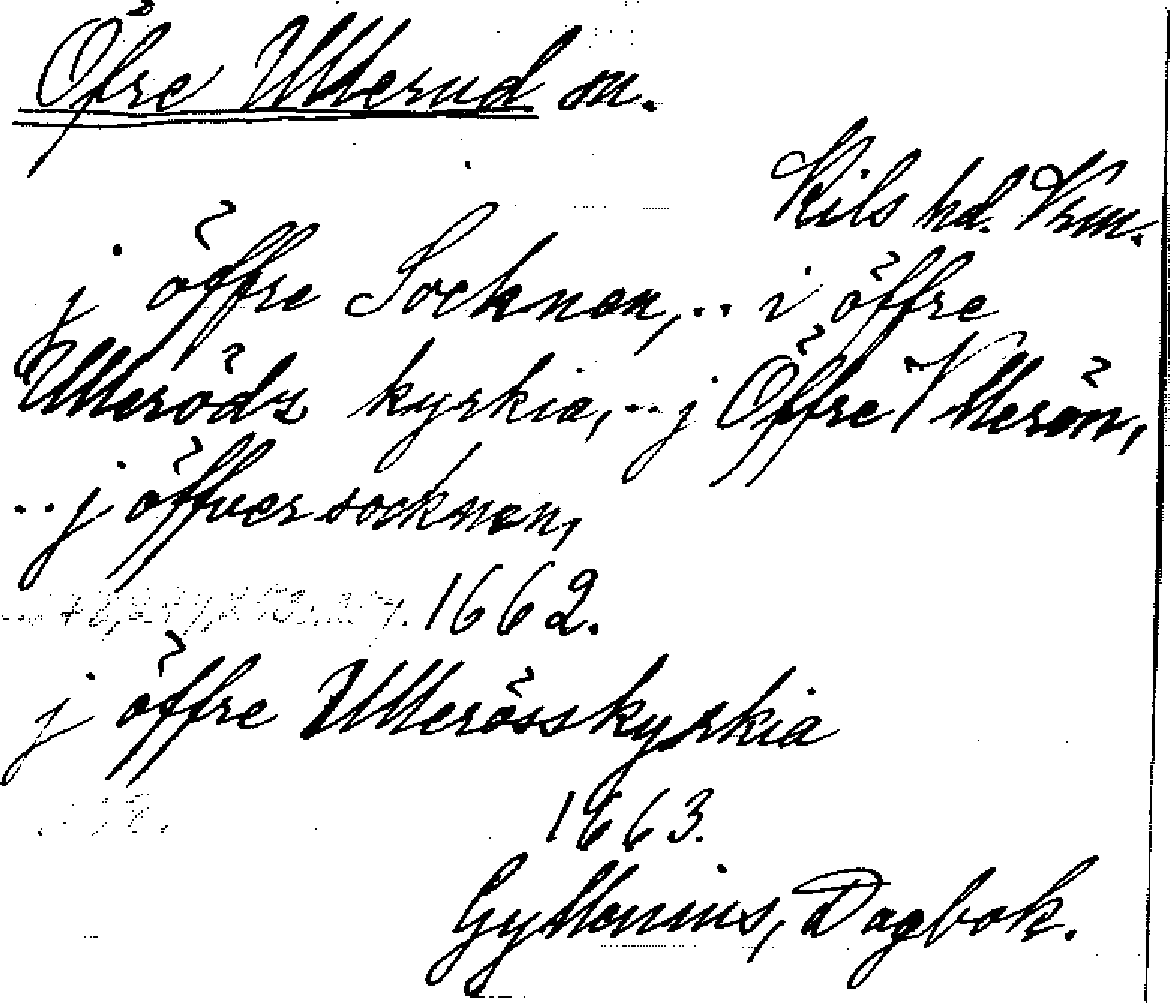 Öfre Ullerud sn.
Kils hd. Vrm.
j öffre Socknen, .. i öffre
Ulleröds kyrkia, .. j Öffre Vllerön,
.. j öffuersocknen,
1662.
j öffre Ullerösskyrkia
1663.
Gyllenius, Dagbok.